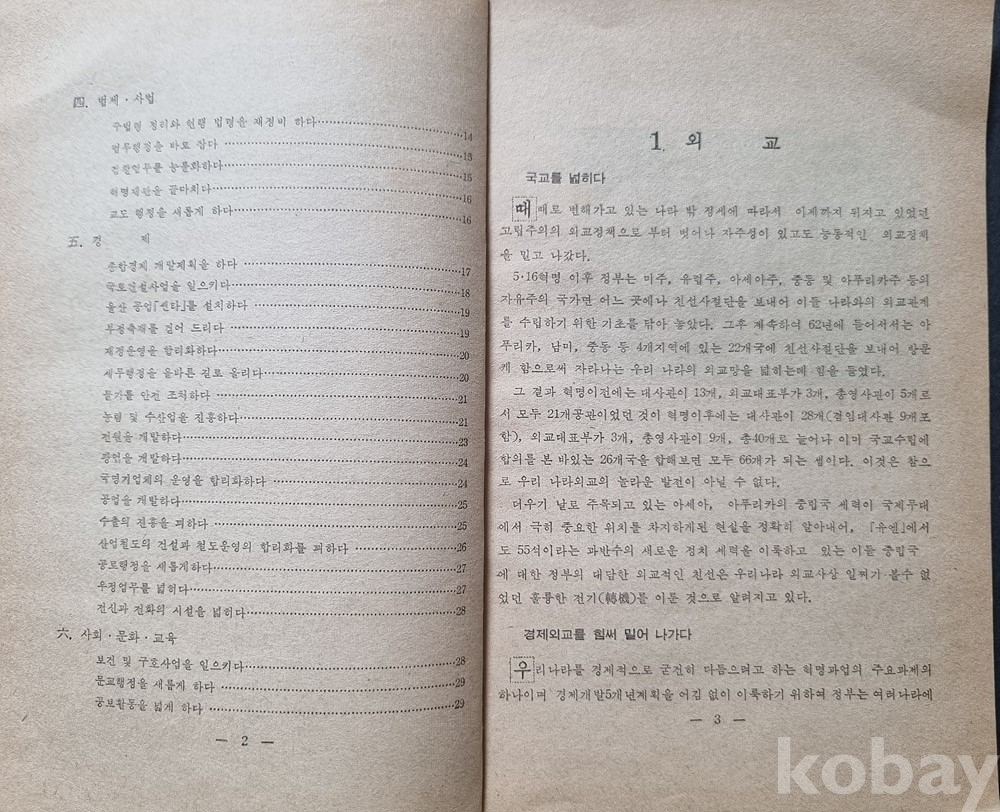 四. 법제·사법
구법령 정리와 현행 법령을 재정비 하다……14
법무행정을 바로 잡다……15
검찰업무를 능률화하다……15
혁명재판을 끝마치다……16
교도 행정을 새롭게 하다……16
五. 경 제
종합경제 개발계획을 하다……17
국토건설사업을 일으키다……18
울산 공업『쎈타』를 설치하다……19
부정축재를 걷어 드리다……19
재정운영을 합리화하다……20
세무행정을 올바른 길로 올리다……20
물가를 안전 조처하다……21
농림 및 수산업을 진흥하다……21
전원을 개발하다……23
광업을 개발하다……24
국영기업체의 운영을 합리화하다……24
공업을 개발하다……25
수출의 진흥을 꾀하다……25
산업철도의 건설과 철도운영의 합리화를 꾀하다……26
공로행정을 새롭게하다……27
우정업무를 넓히다……27
전신과 전화의 시설을 넓히다……28
六. 사회·문화·교육
보건 및 구호사업을 일으키다……28
문교행정을 새롭게 하다……29
공보활동을 넓게 하다……29
— 2 —
1. 외 교
국교를 넓히다
때때로 변해가고 있는 나라 밖 정세에 따라서 이제까지 뒤지고 있었던
고립주의의 외교정책으로 부터 벗어나 자주성이 있고도 능동적인 외교정책
을 밀고 나갔다.
5·16혁명 이후 정부는 미주, 유럽주, 아세아주, 중동 및 아푸리카주 등의
자유주의 국가면 어느 곳에나 친선사절단을 보내어 이들 나라와의 외교관계
를 수립하기 위한 기초를 닦아 놓았다. 그후 계속하여 62년에 들어서서는 아
푸리카, 남미, 중동 등 4개지역에 있는 22개국에 친선사절단을 보내어 방문
케 함으로써 자라나는 우리 나라의 외교망을 넓히는데 힘을 들였다.
그 결과 혁명이전에는 대사관이 13개, 외교대표부가 3개, 총영사관이 5개로
서 모두 21개공관이었던 것이 혁명이후에는 대사관이 28개(겸임대사관 9개포
함), 외교대표부가 3개, 총영사관이 9개, 총40개로 늘어나 이미 국교수립에
합의를 본 바있는 26개국을 합해보면 모두 66개가 되는 셈이다. 이것은 참으
로 우리 나라외교의 놀라운 발전이 아닐 수 없다.
더우기 날로 주목되고 있는 아세아, 아푸리카의 중립국 세력이 국제무대
에서 극히 중요한 위치를 차지하게된 현실을 정확히 알아내어, 『유엔』에서
도 55석이라는 과반수의 새로운 정치 세력을 이룩하고 있는 이들 중립국
에 대한 정부의 대담한 외교적인 친선은 우리나라 외교사상 일찌기 볼수 없
었던 훌륭한 전기(轉機)를 이룬 것으로 알려지고 있다.
경제외교를 힘써 밀어 나가다
우리나라를 경제적으로 굳건히 다듬으려고 하는 혁명과업의 주요과제의
하나이며 경제개발5개년계획을 어김 없이 이룩하기 위하여 정부는 여러나라에
— 3 —
kobay